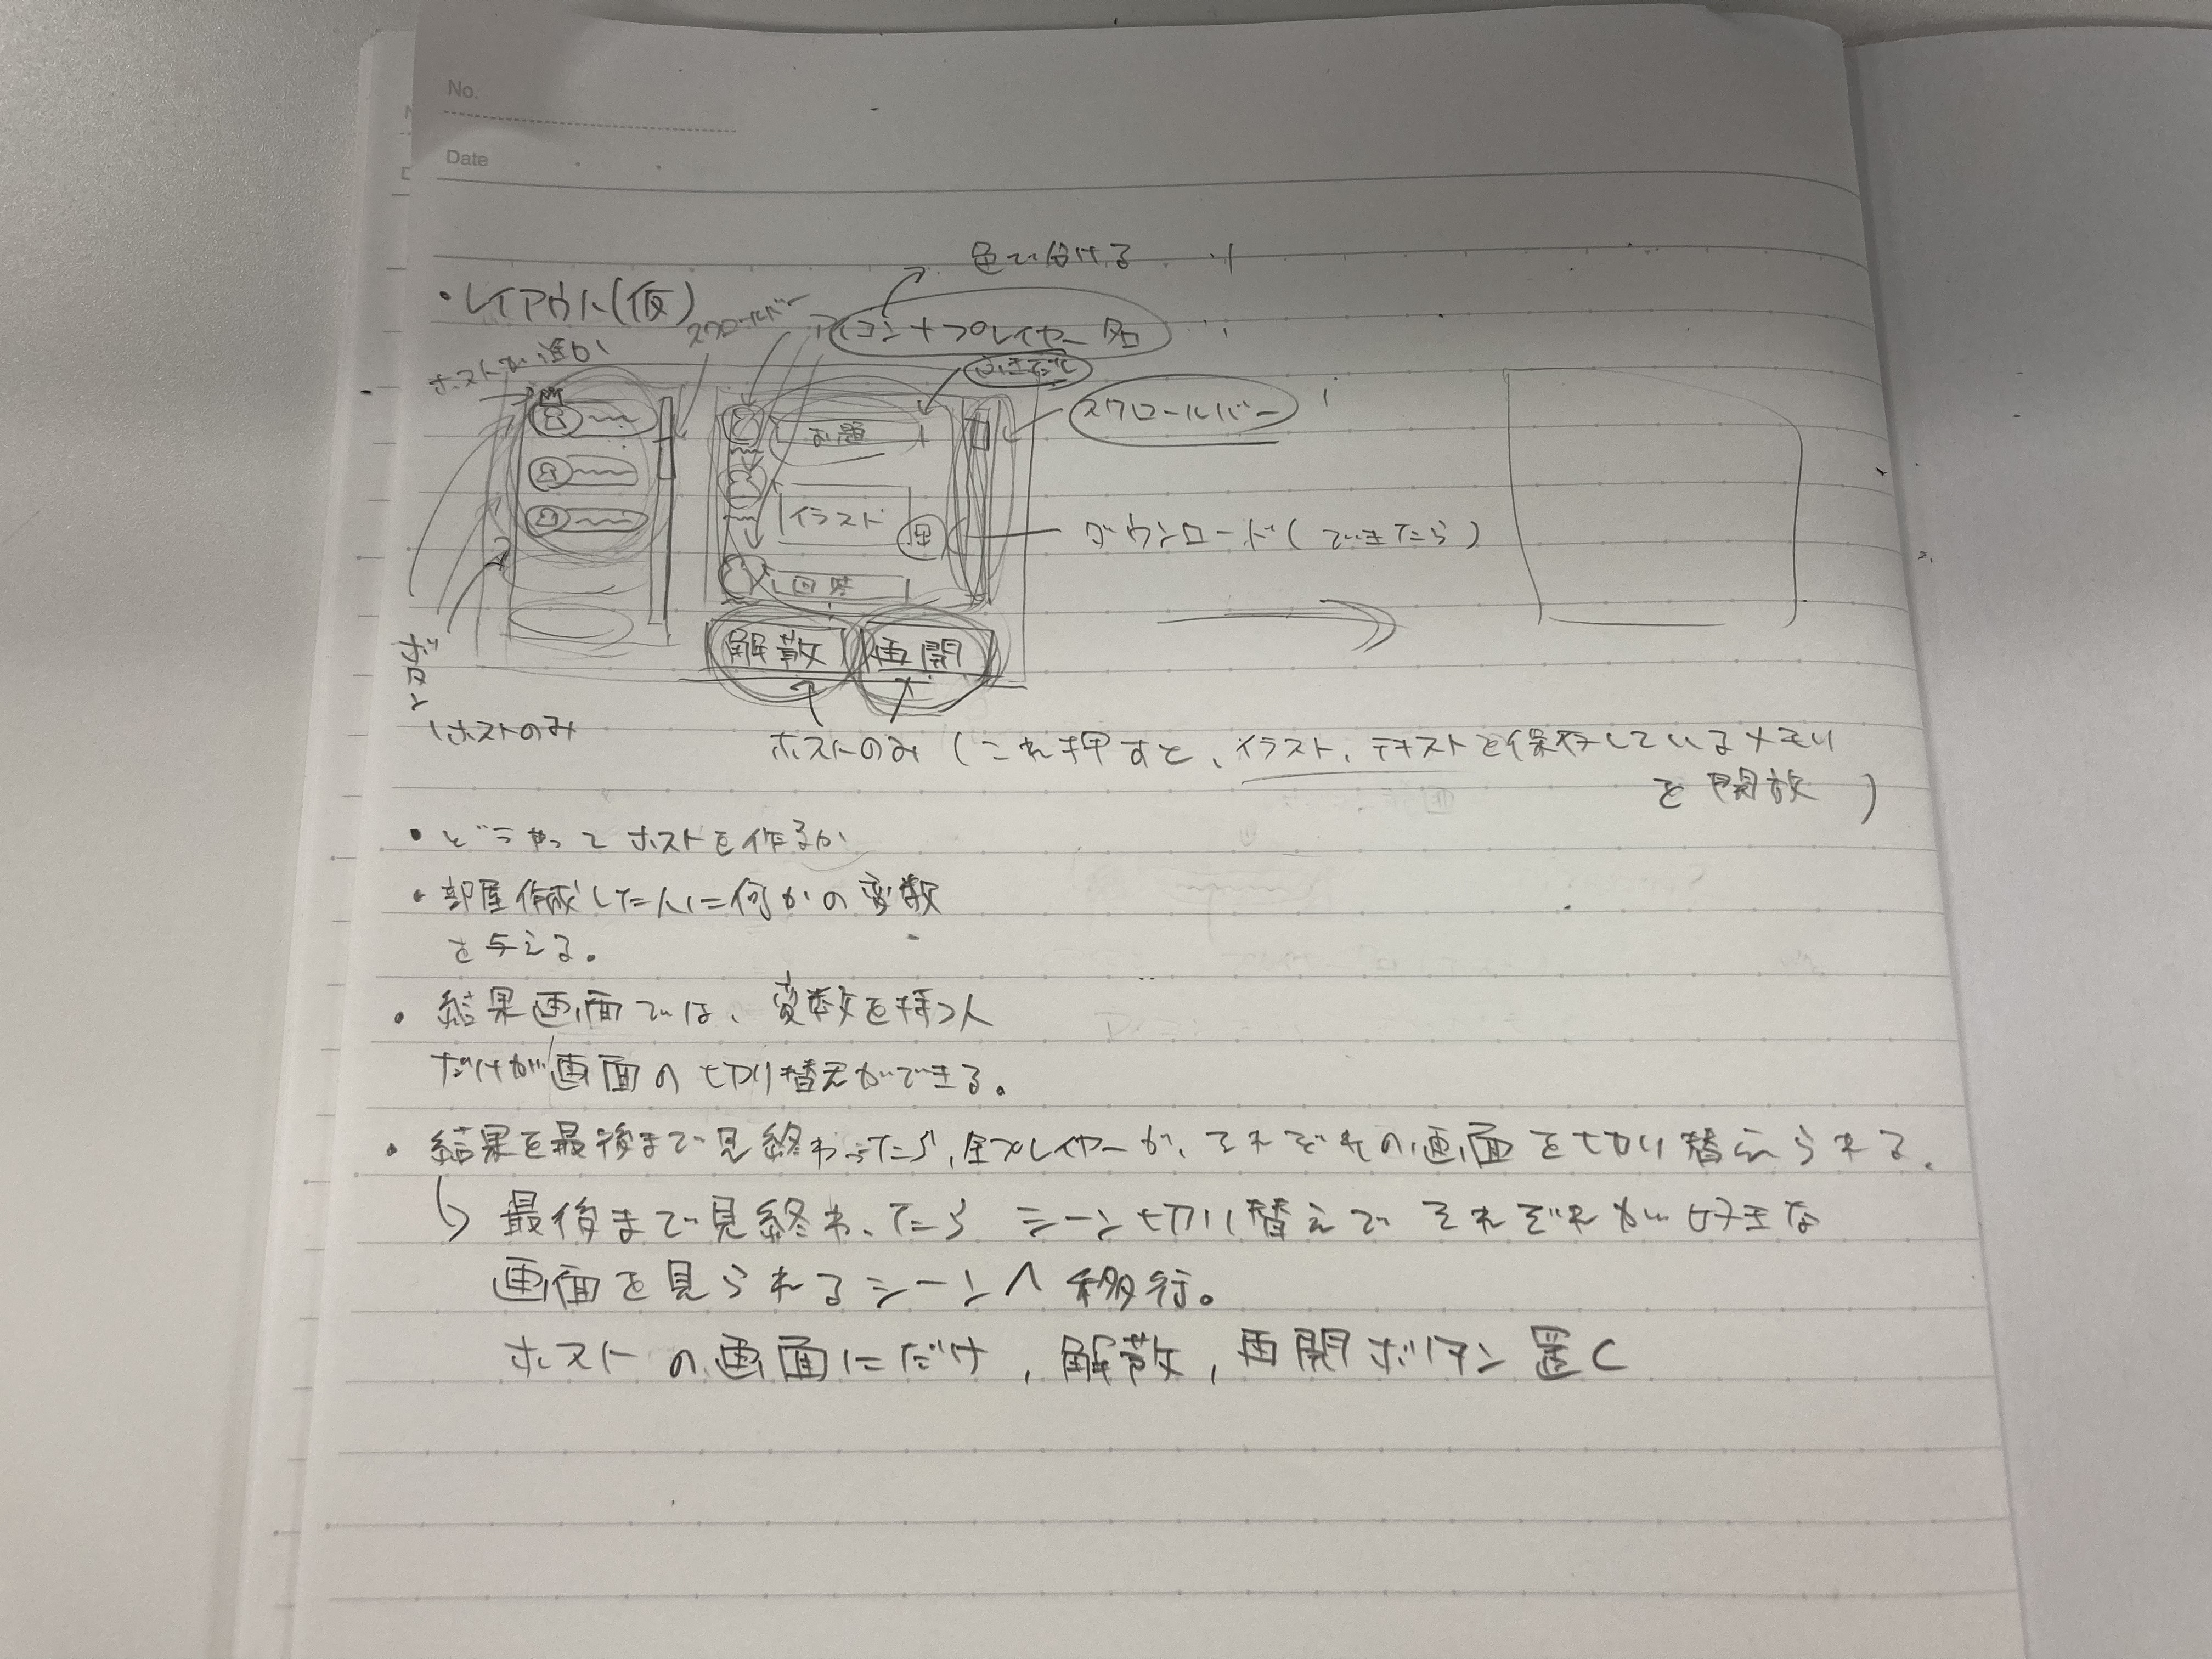 No.
Date
色で分ける
・レイアウト(仮)
スクロールバー
アイコン+プレイヤー名
ホストが進め
ふきだし
スクロールバー
お題
イラスト
ダウンロード(できたら)
回答
解散 再開
ボタン
ホストのみ
ホストのみ(これ押すと、イラスト、テキストを保存しているメモリ
を開放)
・どうやってホストを作るか
・部屋作成した人に何かの変数
を与える。
・結果画面では、変数を持つ人
だけが画面の切り替えができる。
・結果を最後まで見終わったら、全プレイヤーが、それぞれの画面を切り替えられる。
↳ 最後まで見終わったら シーン切り替えで それぞれが好きな
画面を見られるシーンへ移行。
ホストの画面にだけ, 解散, 再開ボタン置く